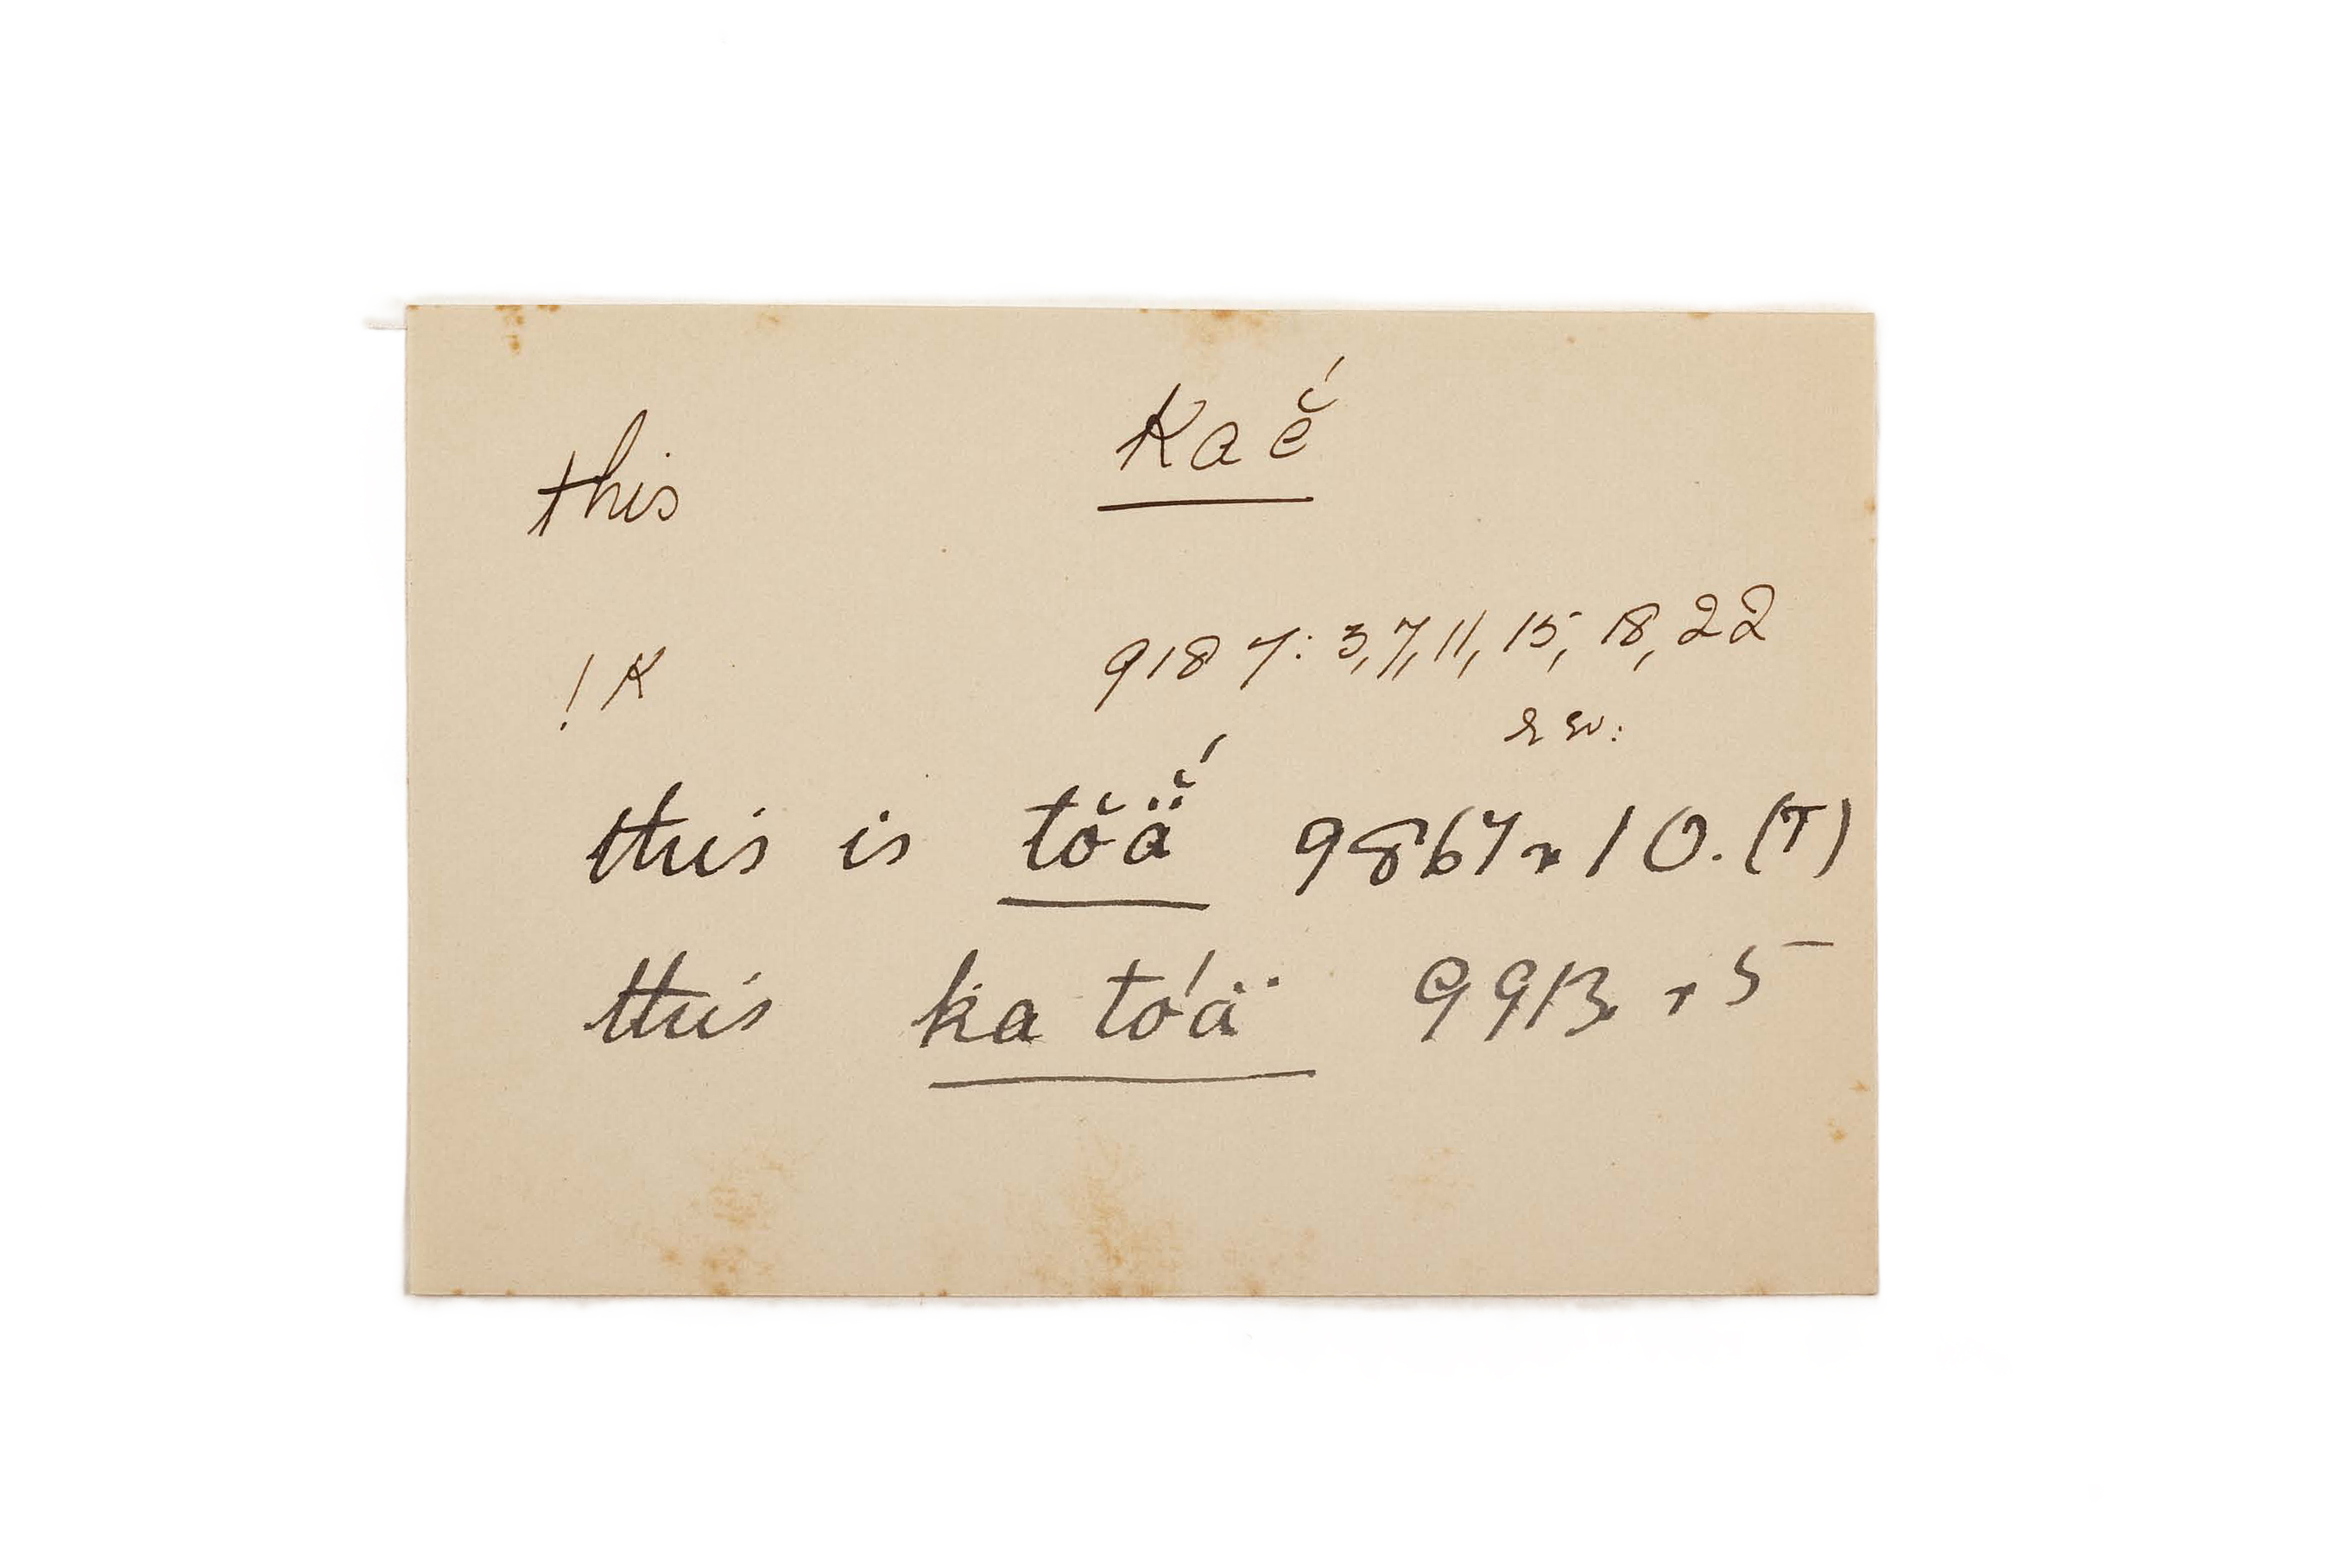 this Ka ĕ́
!K 9187: 3, 7, 11, 15, 18, 22
rev:
this is tŏä̆́ 9867 r 10. (T)
this ka tóä 9913. r 5